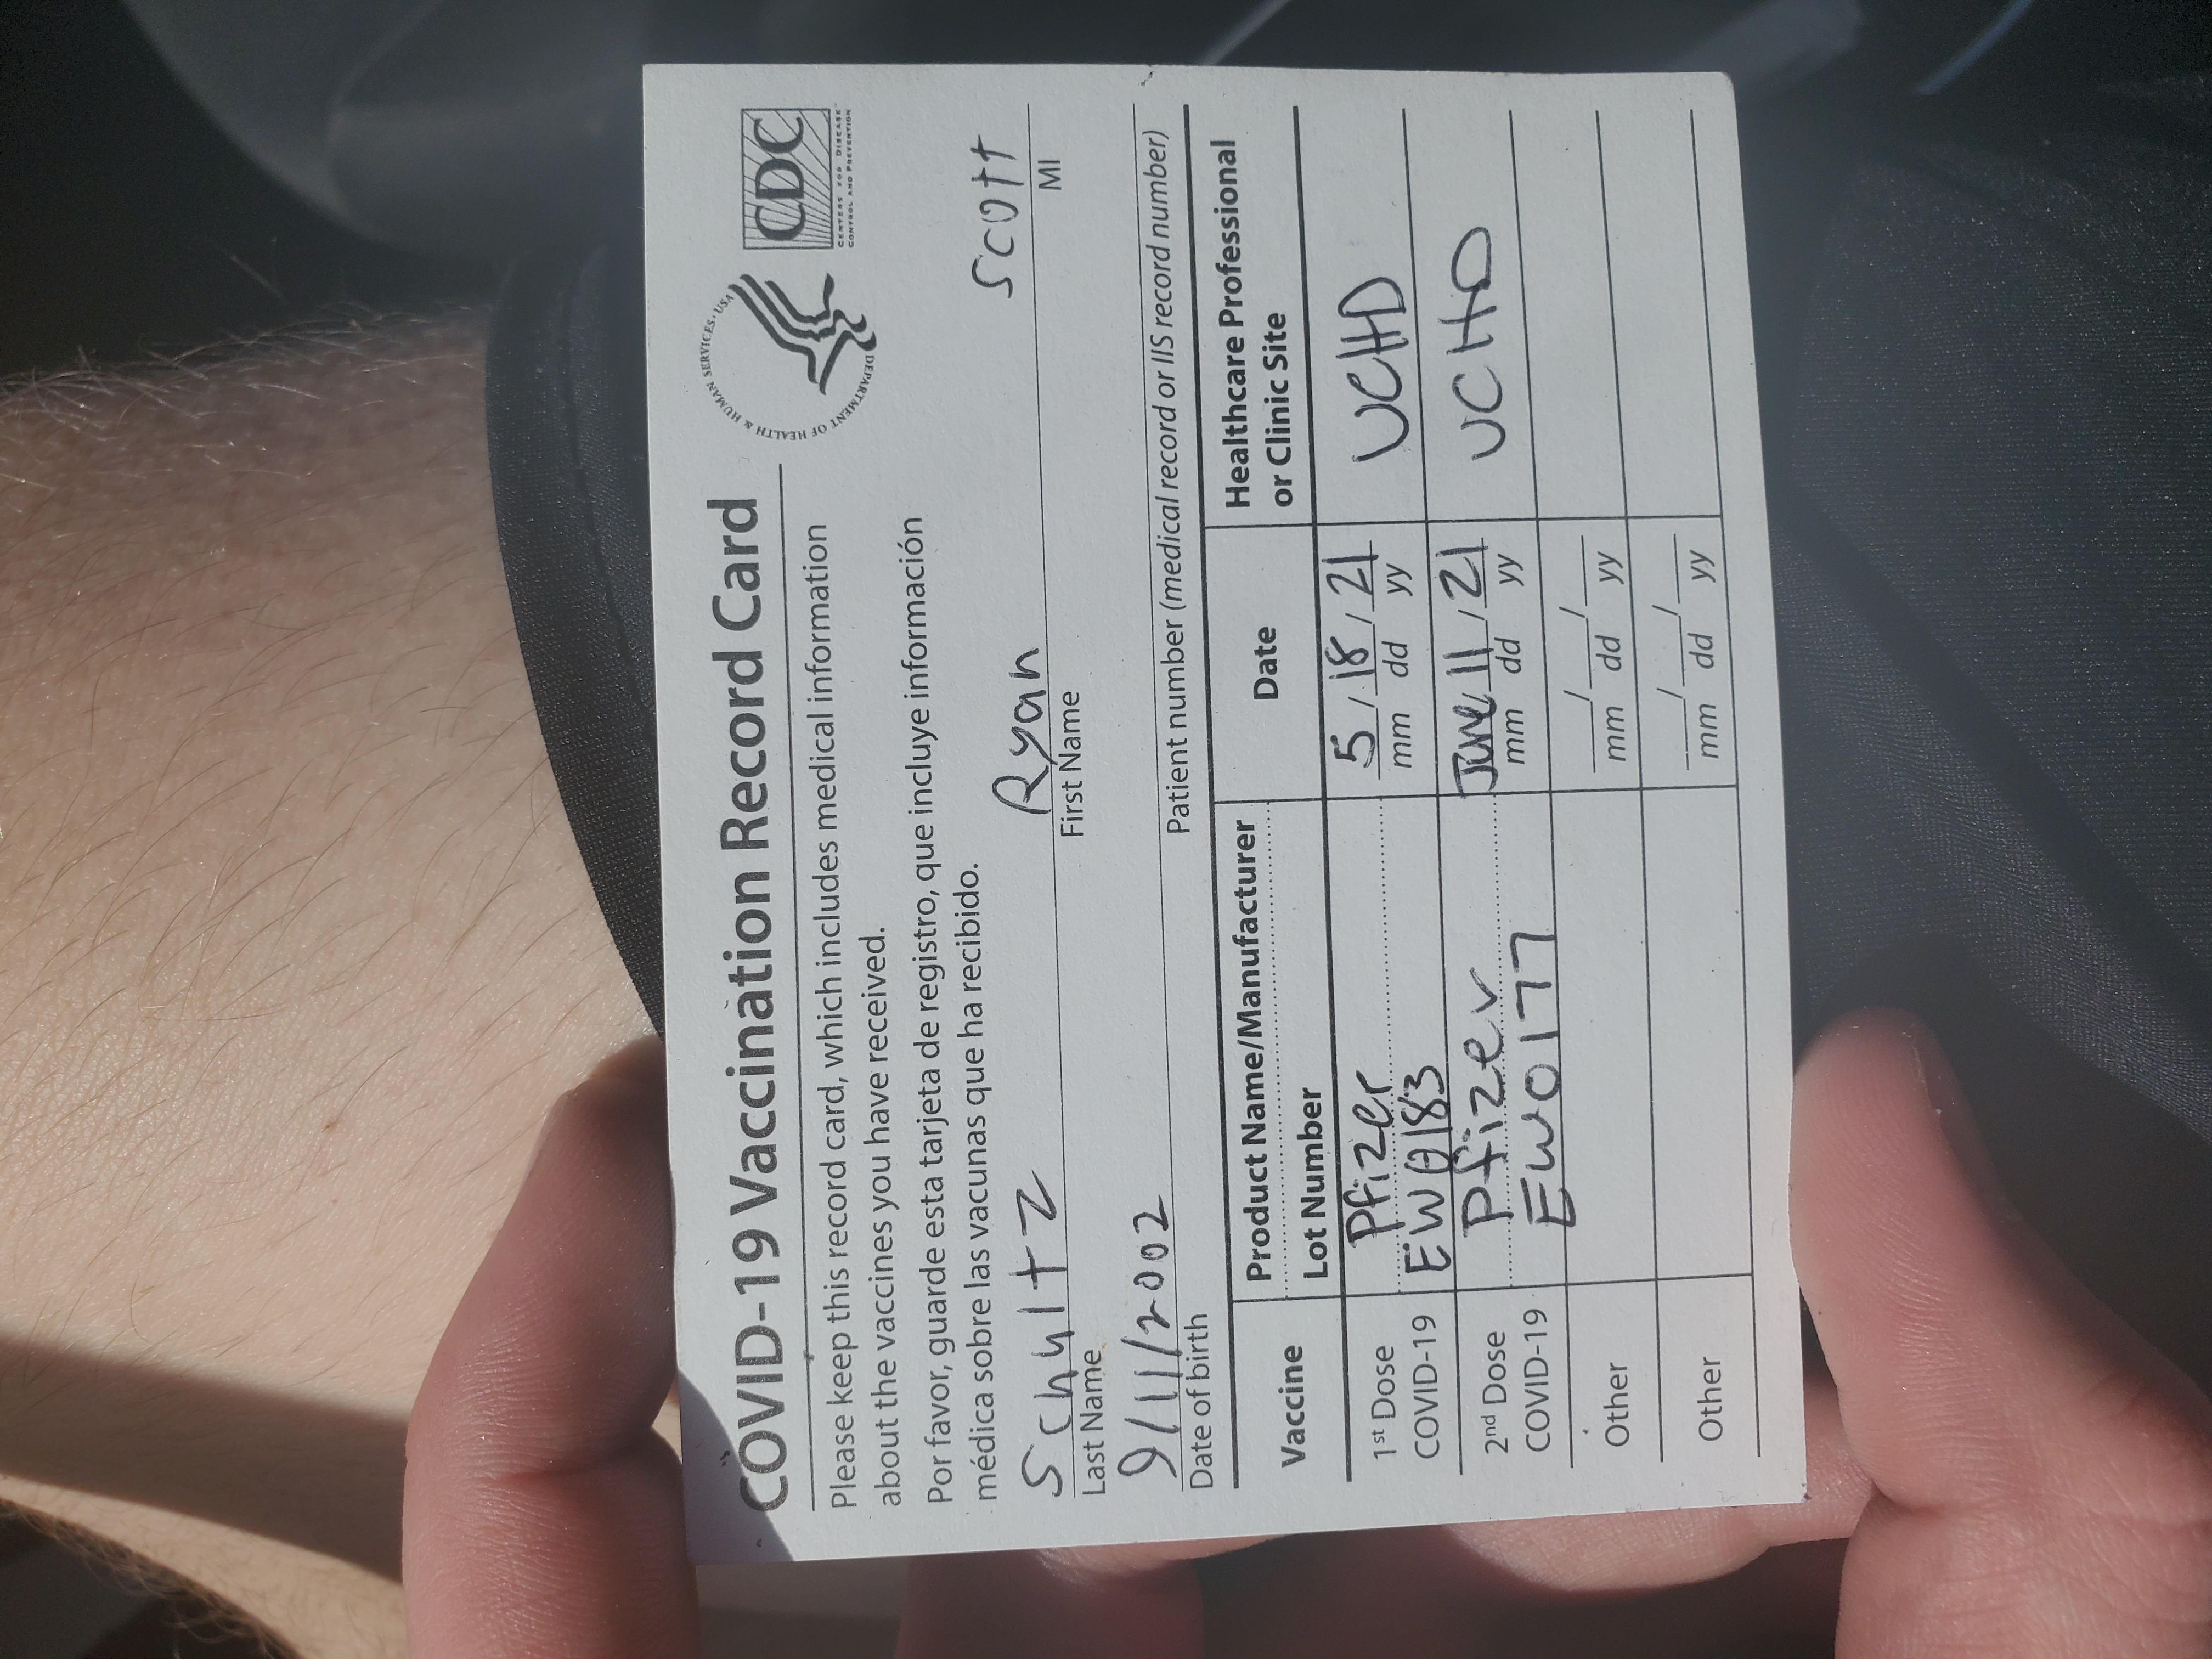 COVID-19 Vaccination Record Card
DEPARTMENT OF HEALTH & HUMAN SERVICES · USA
CDC
CENTERS FOR DISEASE
CONTROL AND PREVENTION
Please keep this record card, which includes medical information
about the vaccines you have received.
Por favor, guarde esta tarjeta de registro, que incluye información
médica sobre las vacunas que ha recibido.
Schultz Ryan Scott
Last Name First Name MI
9/11/2002
Date of birth Patient number (medical record or IIS record number)
Vaccine Product Name/Manufacturer Date Healthcare Professional
Lot Number or Clinic Site
1st Dose Pfizer 5/18/21 UCHD
COVID-19 EW0183 mm dd yy
2nd Dose Pfizer June/11/21 UCHD
COVID-19 EW0177 mm dd yy
Other ___/___/___
mm dd yy
Other ___/___/___
mm dd yy